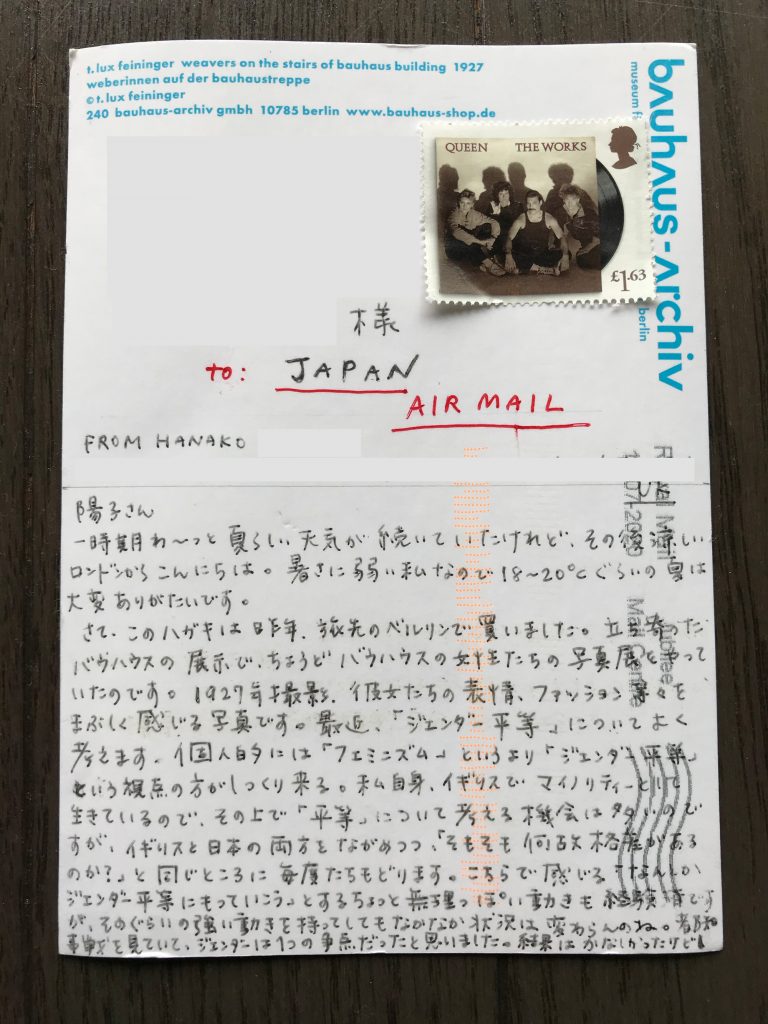 t. lux feininger weavers on the stairs of bauhaus building 1927
weberinnen auf der bauhaustreppe
© t. lux feininger
240 bauhaus-archiv gmbh 10785 berlin www.bauhaus-shop.de
bauhaus-archiv
museum f
berlin
QUEEN THE WORKS
£1.63
様
to: JAPAN
AIR MAIL
FROM HANAKO
Royal Mail
Jubilee
Mail Centre
陽子さん
一時期わ〜っと夏らしい天気が続いていたけれど、その後涼しい
ロンドンからこんにちは。暑さに弱い私なので18〜20℃ぐらいの夏は
大変ありがたいです。
さて、このハガキは昨年、旅先のベルリンで買いました。立ち寄った
バウハウスの展示で、ちょうどバウハウスの女性たちの写真展をやって
いたのです。1927年撮影、彼女たちの表情、ファッション等々を
まぶしく感じる写真です。最近、「ジェンダー平等」についてよく
考えます。個人的には「フェミニズム」というより「ジェンダー平等」
という観点の方がしっくり来る。私自身、イギリスでマイノリティーとして
生きているので、その上で「平等」について考える機会は多いので
すが、イギリスと日本の両方をながめつつ、「そもそも何故格差がある
のか?」と同じところに毎度たちもどります。こちらで感じる「なんとか
ジェンダー平等にもっていこう」とするちょっと無理っぽい動きも経験済です
が、そのぐらいの強い動きを持ってしてもなかなか状況は変わらんのね。都知
事戦を見ていて、ジェンダーは1つの争点だったと思いました。結果はかなしかったけど!